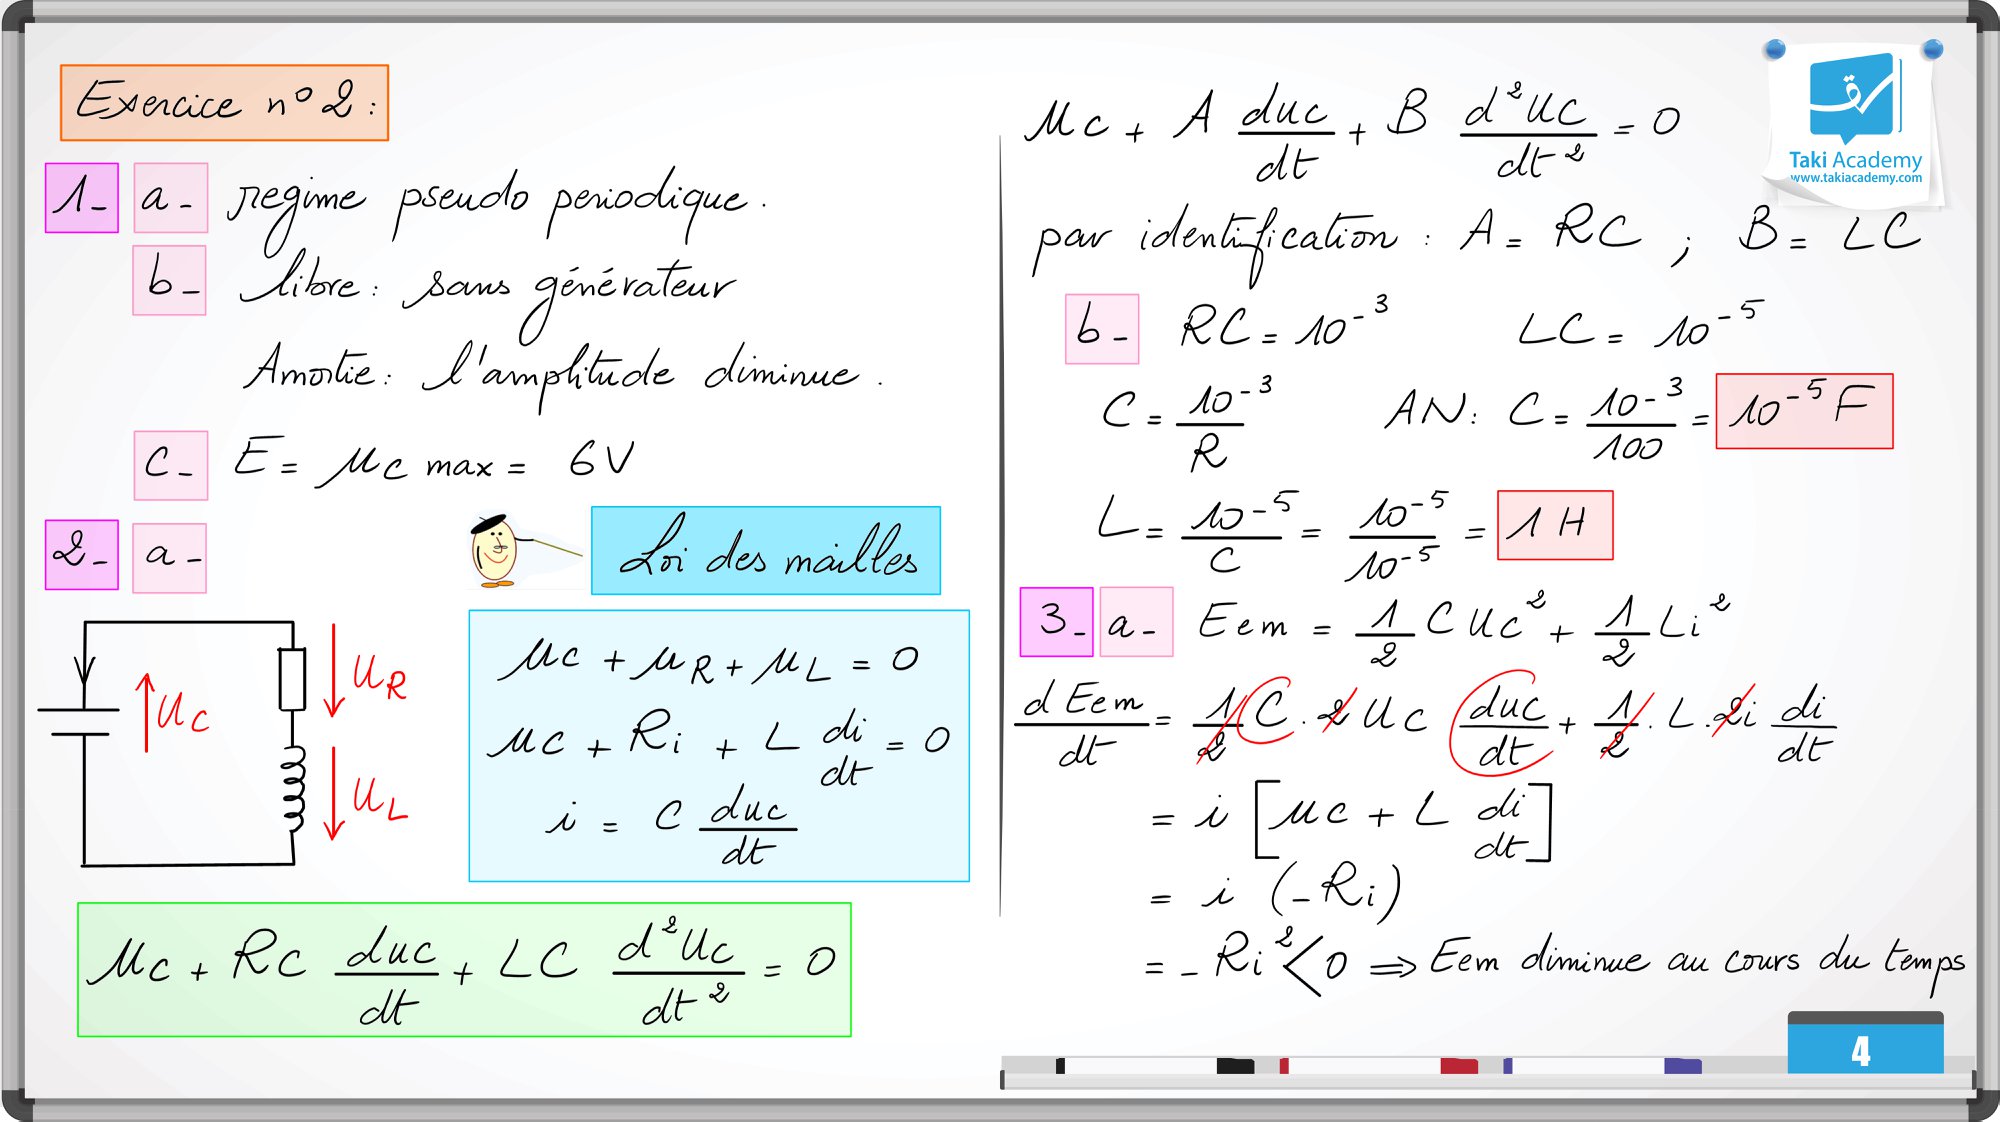 Exercice n° 2 :
1_ a_ régime pseudo periodique.
b_ libre : sans générateur
Amortie : l'amplitude diminue.
c_ E = uc max = 6V
2_ a_
Loi des mailles
uC
uR
uL
uc + uR + uL = 0
uc + Ri + L di/dt = 0
i = C duc/dt
uc + RC duc/dt + LC d²uc/dt² = 0
uc + A duc/dt + B d²uc/dt² = 0
par identification : A = RC ; B = LC
b_ RC = 10⁻³ LC = 10⁻⁵
C = 10⁻³/R AN: C = 10⁻³/100 = 10⁻⁵ F
L = 10⁻⁵/C = 10⁻⁵/10⁻⁵ = 1 H
3_ a_ Eem = 1/2 C uc² + 1/2 Li²
d Eem/dt = 1/2 C . 2 uc duc/dt + 1/2 . L . 2i di/dt
= i [uc + L di/dt]
= i (-Ri)
= - Ri² < 0 ⇒ Eem diminue au cours du temps
Taki Academy
www.takiacademy.com
4